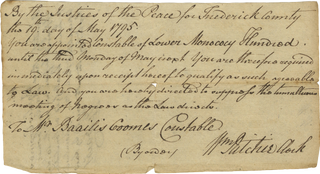 By the Justices of the Peace for Frederick County
the 19th day of May 1795.
You are appointed Constable of Lower Monocacy Hundred
until the third Monday of May next. You are therefore required
immediately upon receipt hereof to qualify as such agreeable
to Law. And you are hereby directed to suppress the tumultuous
meeting of Negroes as the Law directs.
To Mr. Baailis Coomes Constable
(By order) Wm Ritchie Clerk